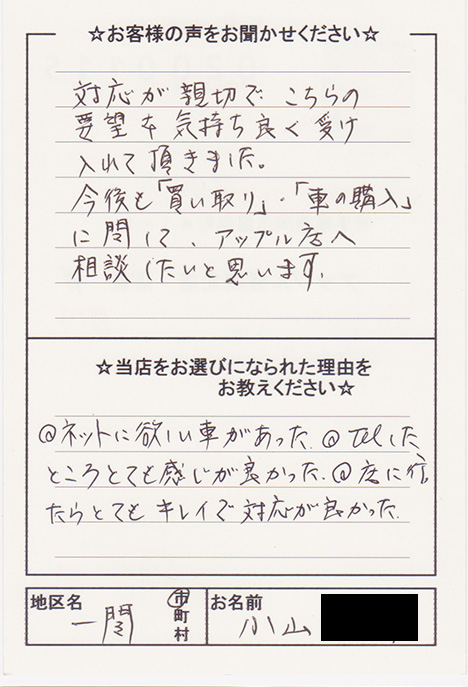 ☆お客様の声をお聞かせください☆
対応が親切で こちらの
要望を気持ち良く受け
入れて頂きました。
今後も「買い取り」・「車の購入」
に関して、アップル店へ
相談したいと思います。
☆当店をお選びになられた理由を
お教えください☆
@ネットに欲しい車があった.@Telした
ところとても感じが良かった.@店に行っ
たらとてもキレイで対応が良かった.
地区名
一関
市
町
村
お名前
小山